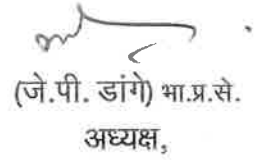 (जे.पी. डांगे) भा.प्र.से.
अध्यक्ष,